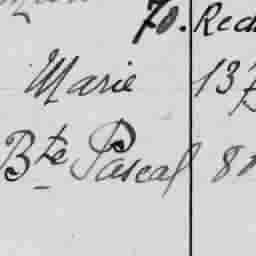 70. Red
Marie 137
Bte Pascal 8